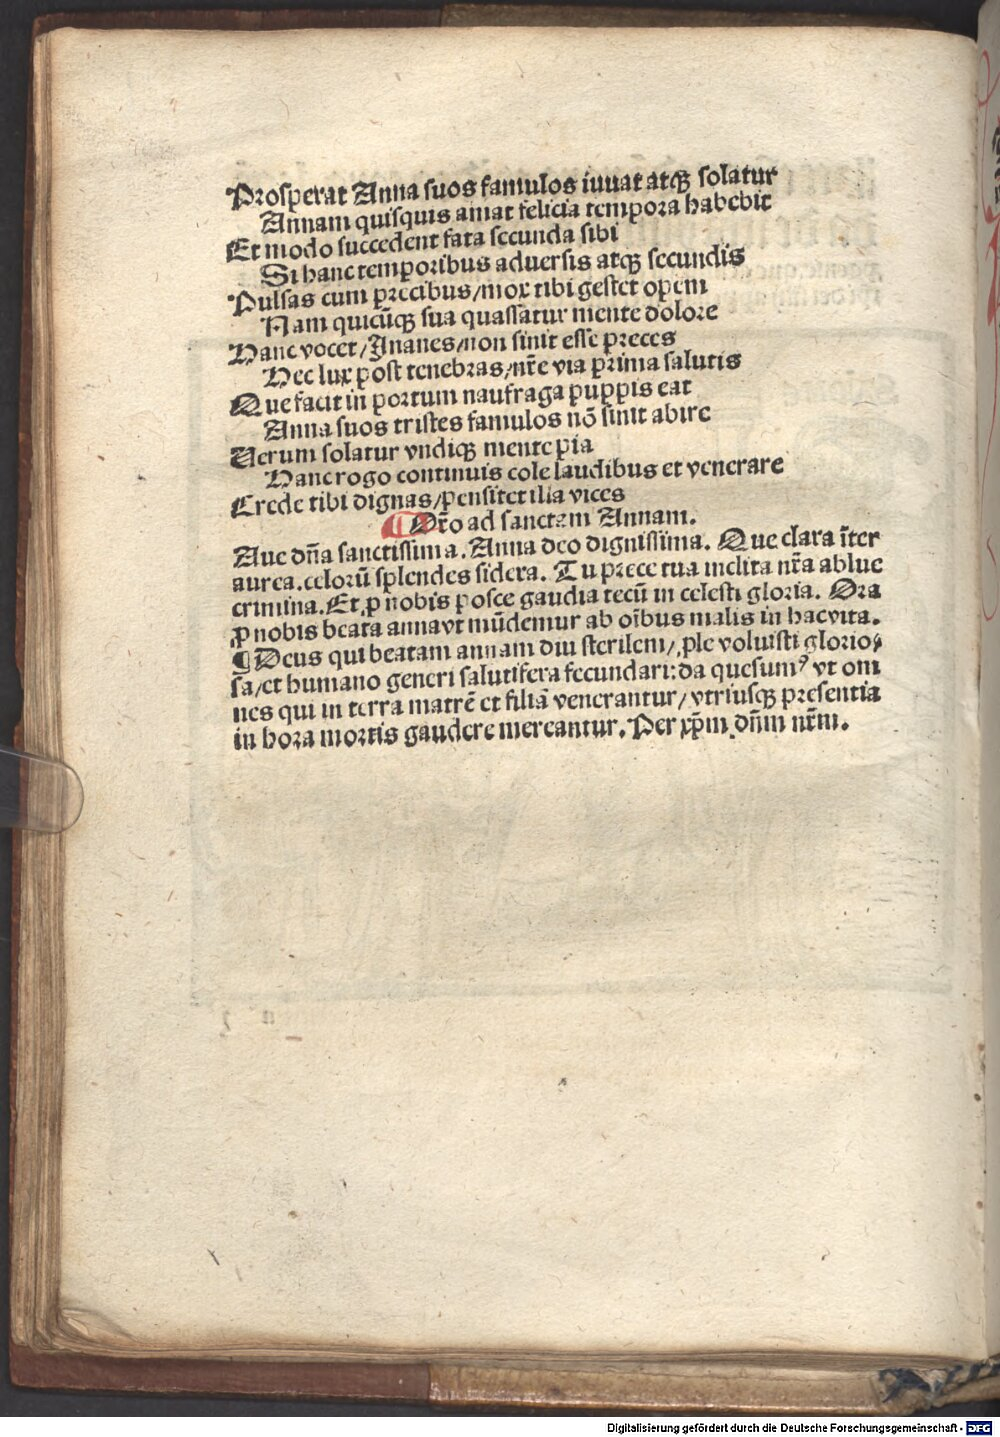 Prosperat Anna suos famulos iuuat atqꝫ solatur
Annam quisquis amat felicia tempora habebit
Et modo succedent fata secunda sibi
Si hanc temporibus aduersis atqꝫ secundis
Pulsas cum precibus/mox tibi gestet opem
Nam quicūqꝫ sua quassatur mente dolore
Hanc vocet/Inanes/non sinit esse preces
Hec lux post tenebras/nr̄e via prima salutis
Que facit in portum naufraga puppis eat
Anna suos tristes famulos nō sinit abire
Uerum solatur vndiqꝫ mente pia
Hanc rogo continuis cole laudibus et venerare
Crede tibi dignas/pensitet illa vices
¶ Or̄o ad sanctam Annam.
Aue dn̄a sanctissima. Anna deo dignissima. Que clara īter
aurea. celorū splendes sidera. Tu prece tua inclita nr̄a ablue
crimina. Et ꝓ nobis posce gaudia tecū in celesti gloria. Ora
ꝓ nobis beata anna vt mūdemur ab oībus malis in hac vita.
¶ Deus qui beatam annam diu sterilem/ꝓle voluisti glorio⸗
sa/et humano generi salutifera fecundari: da quesumꝰ vt om
nes qui in terra matrē et filiā venerantur/vtriusqꝫ presentia
in hora mortis gaudere mereantur. Per xp̄m dn̄m nr̄m.
Digitalisierung gefördert durch die Deutsche Forschungsgemeinschaft - DFG